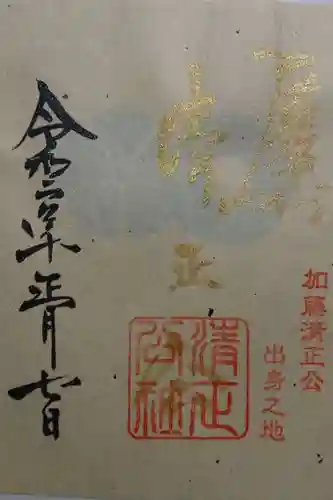 加藤清正公
出身之地
正
清正
公社
令和二年正月七日